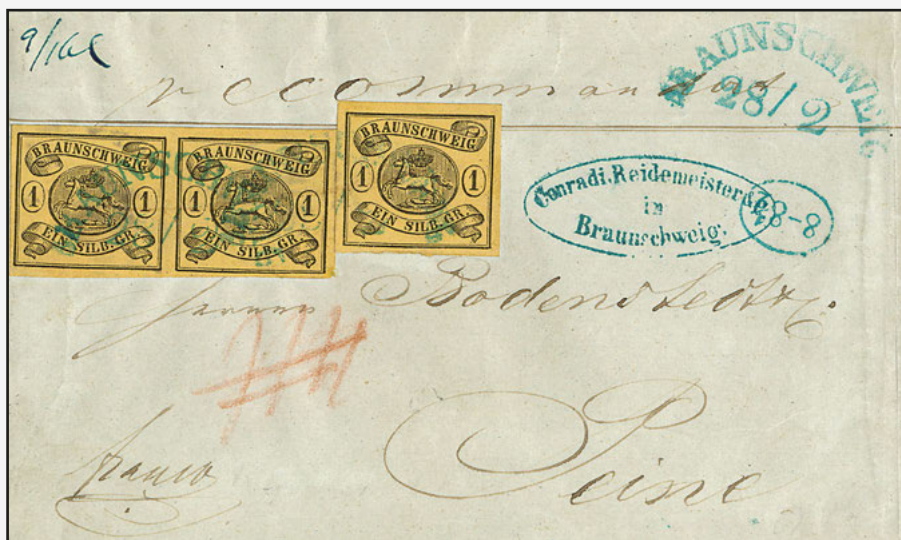 recommandirt
BRAUNSCHWEIG
28/2
BRAUNSCHWEIG
1 1
EIN SILB. GR.
BRAUNSCHWEIG
1 1
EIN SILB. GR.
BRAUNSCHWEIG
1 1
EIN SILB. GR.
Conradi, Reidemeister & Co
in
Braunschweig.
8-8
Herren Bodenstedt & C.
Peine
franco